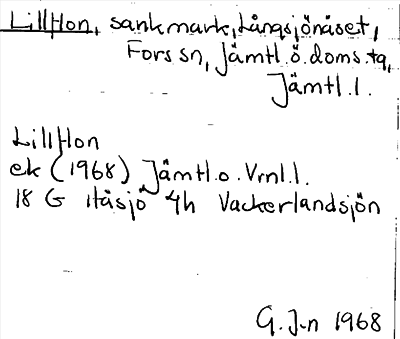 Lillflon, sankmark, Långsjönäset,
Fors sn, Jämtl.ö.doms.tg,
Jämtl.l.
Lillflon
ek (1968) Jämtl.o.Vrnl.l.
18 G Itåsjö 4h Vackerlandsjön
G.J-n 1968